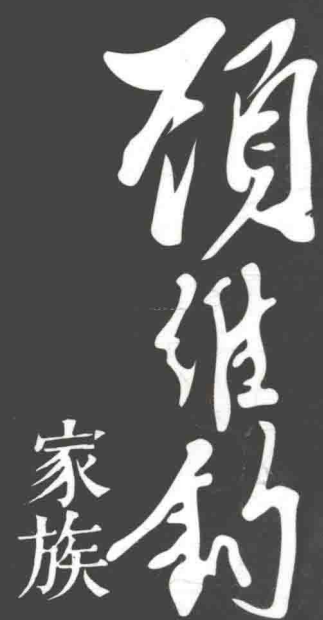 顾维钧
家族